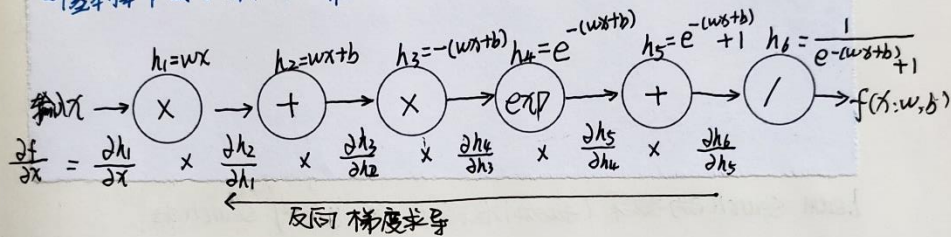 h₁=wx h₂=wx+b h₃=-(wx+b) h₄=e^{-(wx+b)} h₅=e^{-(wx+b)}+1 h₆=\frac{1}{e^{-(wx+b)}+1}
输入x → × → + → × → exp → + → / → f(x;w,b)
\frac{∂f}{∂x} = \frac{∂h₁}{∂x} × \frac{∂h₂}{∂h₁} × \frac{∂h₃}{∂h₂} × \frac{∂h₄}{∂h₃} × \frac{∂h₅}{∂h₄} × \frac{∂h₆}{∂h₅}
反向 梯度求导